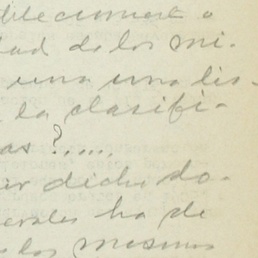 blecimient o
dad de los mi-
una una lis-
la clasifi-
as?.....
er dicho do-
erales ha de
los mismos